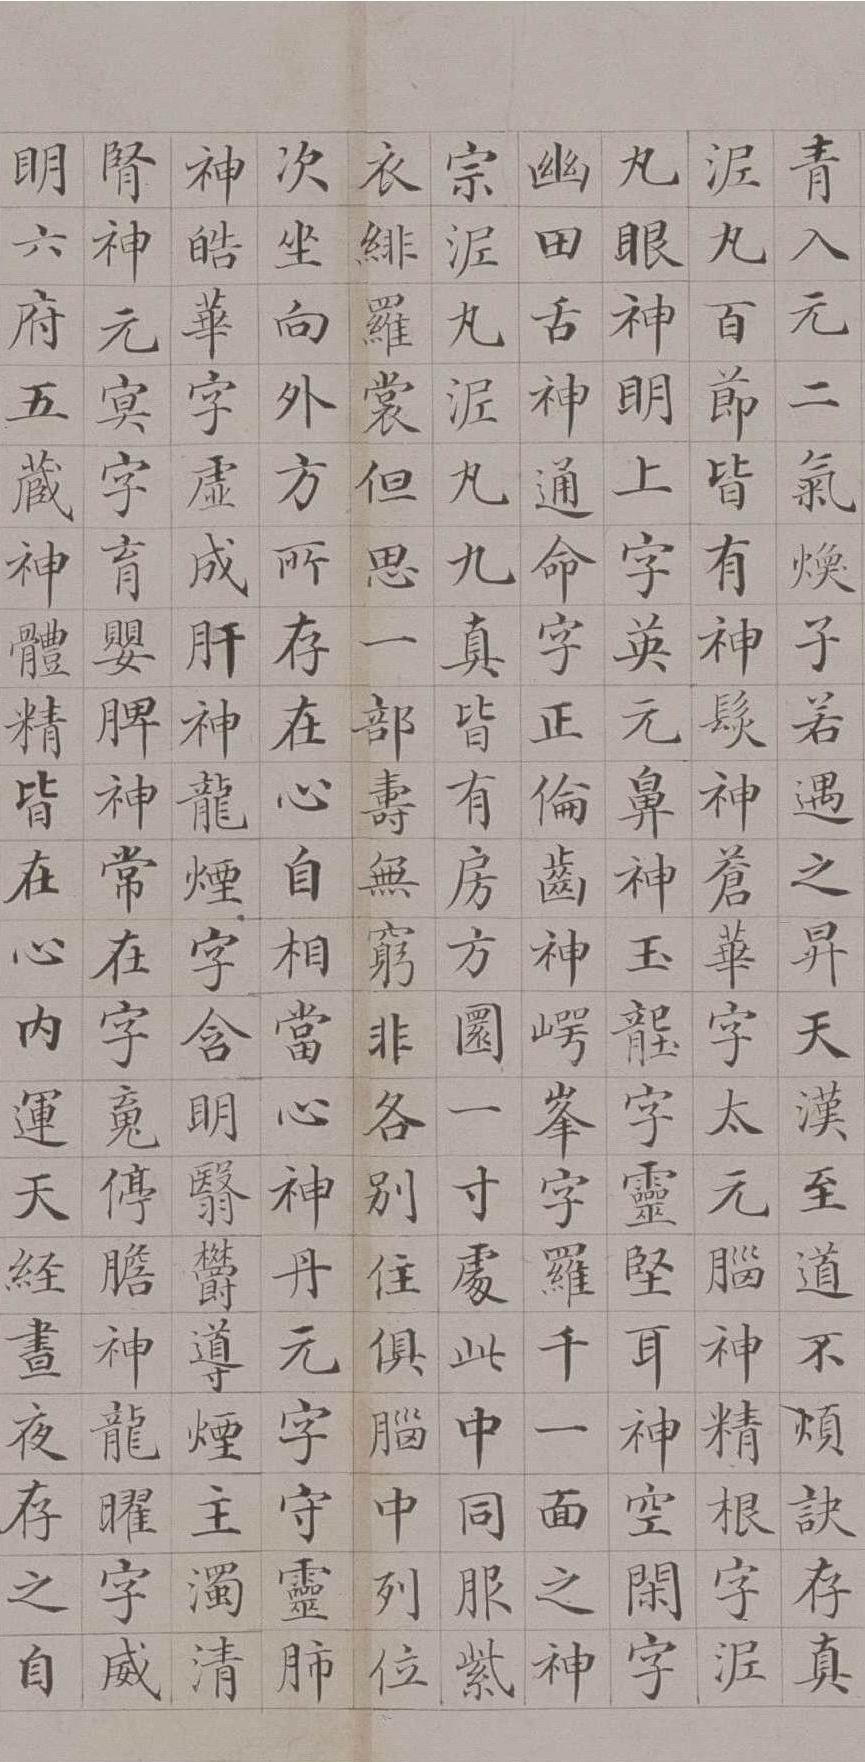 青入元二氣煥子若遇之昇天漢至道不煩訣存真
泥丸百節皆有神髮神蒼華字太元腦神精根字泥
丸眼神明上字英元鼻神玉壟字靈堅耳神空閑字
幽田舌神通命字正倫齒神崿峯字羅千一面之神
宗泥丸泥丸九真皆有房方圓一寸處此中同服紫
衣緋羅裳但思一部壽無窮非各別住俱腦中列位
次坐向外方所存在心自相當心神丹元字守靈肺
神皓華字虛成肝神龍煙字含明翳鬱導煙主濁清
腎神元冥字育嬰脾神常在字魂停膽神龍曜字威
明六府五藏神體精皆在心內運天経晝夜存之自